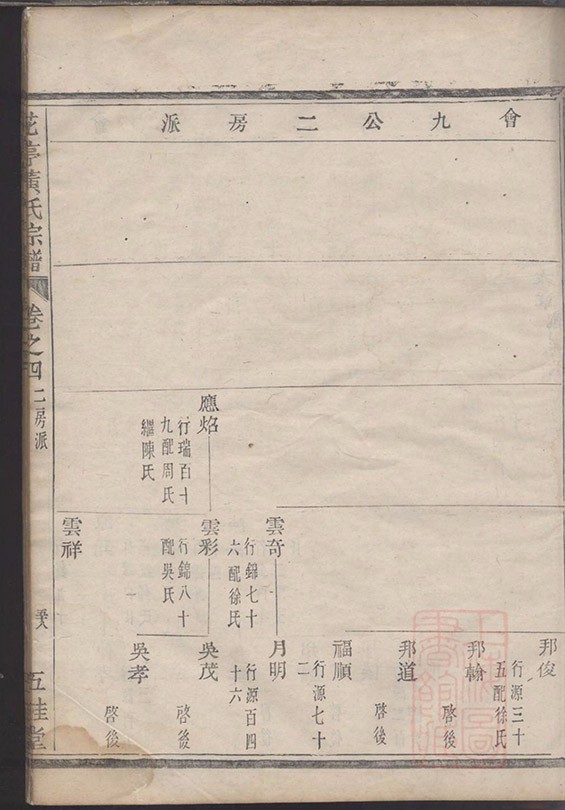 會九公二房派
應焰
行瑞百十
九配周氏
繼陳氏
雲奇
行錦七十
六配徐氏
雲彩
行錦八十
配吳氏
雲祥
邦俊
行源三十
五配徐氏
邦翰
啓後
邦道
啓後
福順
行源七十
二
月明
行源百四
十六
吳茂
啓後
吳孝
啓後
花亭黃氏宗譜
卷之四
二房派
五桂堂